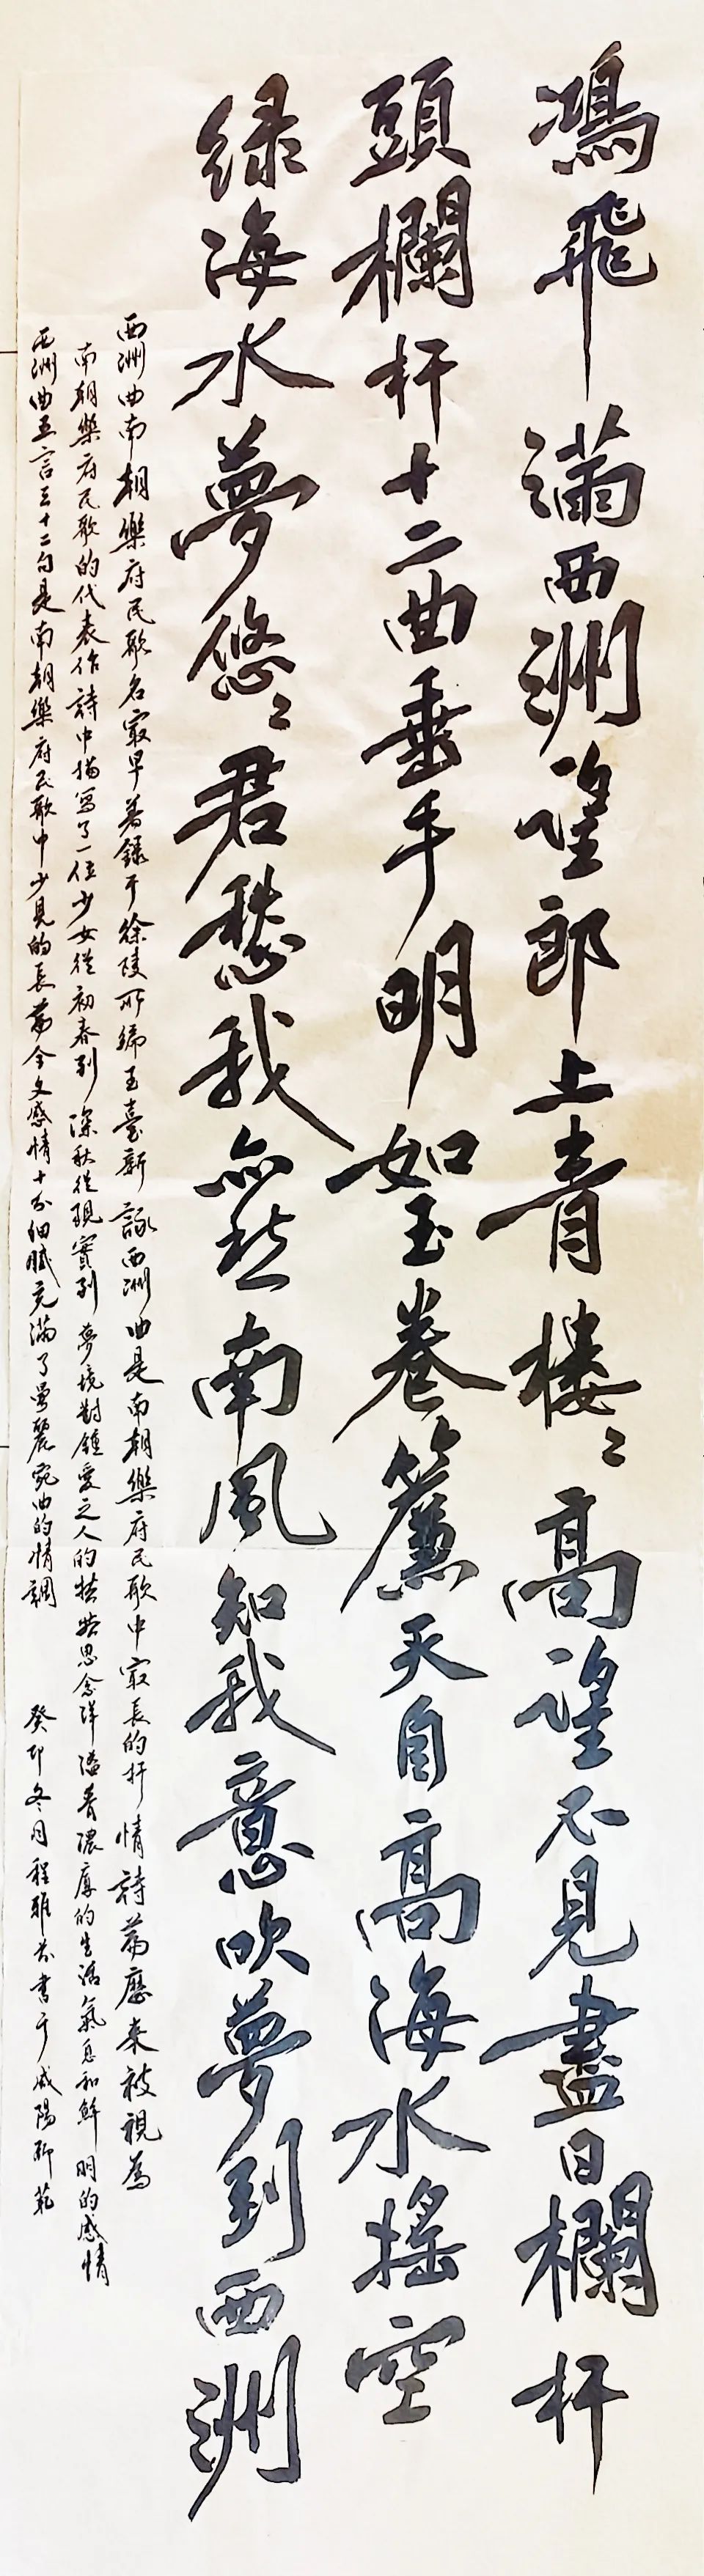 鴻飛滿西洲望郎上青樓〻高望不見盡日欄杆
頭欄杆十二曲垂手明如玉卷簾天自高海水搖空
緑海水夢悠〻君愁我亦愁南風知我意吹夢到西洲
西洲曲南朝樂府民歌名最早著録于徐陵所編玉臺新詠西洲曲是南朝樂府民歌中最長的抒情詩篇歷來被視為
南朝樂府民歌的代表作詩中描寫了一位少女從初春到深秋從現實到夢境對鍾愛之人的苦苦思念洋溢着濃厚的生活氣息和鮮明的感情
西洲曲五言三十二句是南朝樂府民歌中少見的長篇全文感情十分細膩充滿了曼麗宛曲的情調 癸卯冬月程雅芬書于咸陽師範